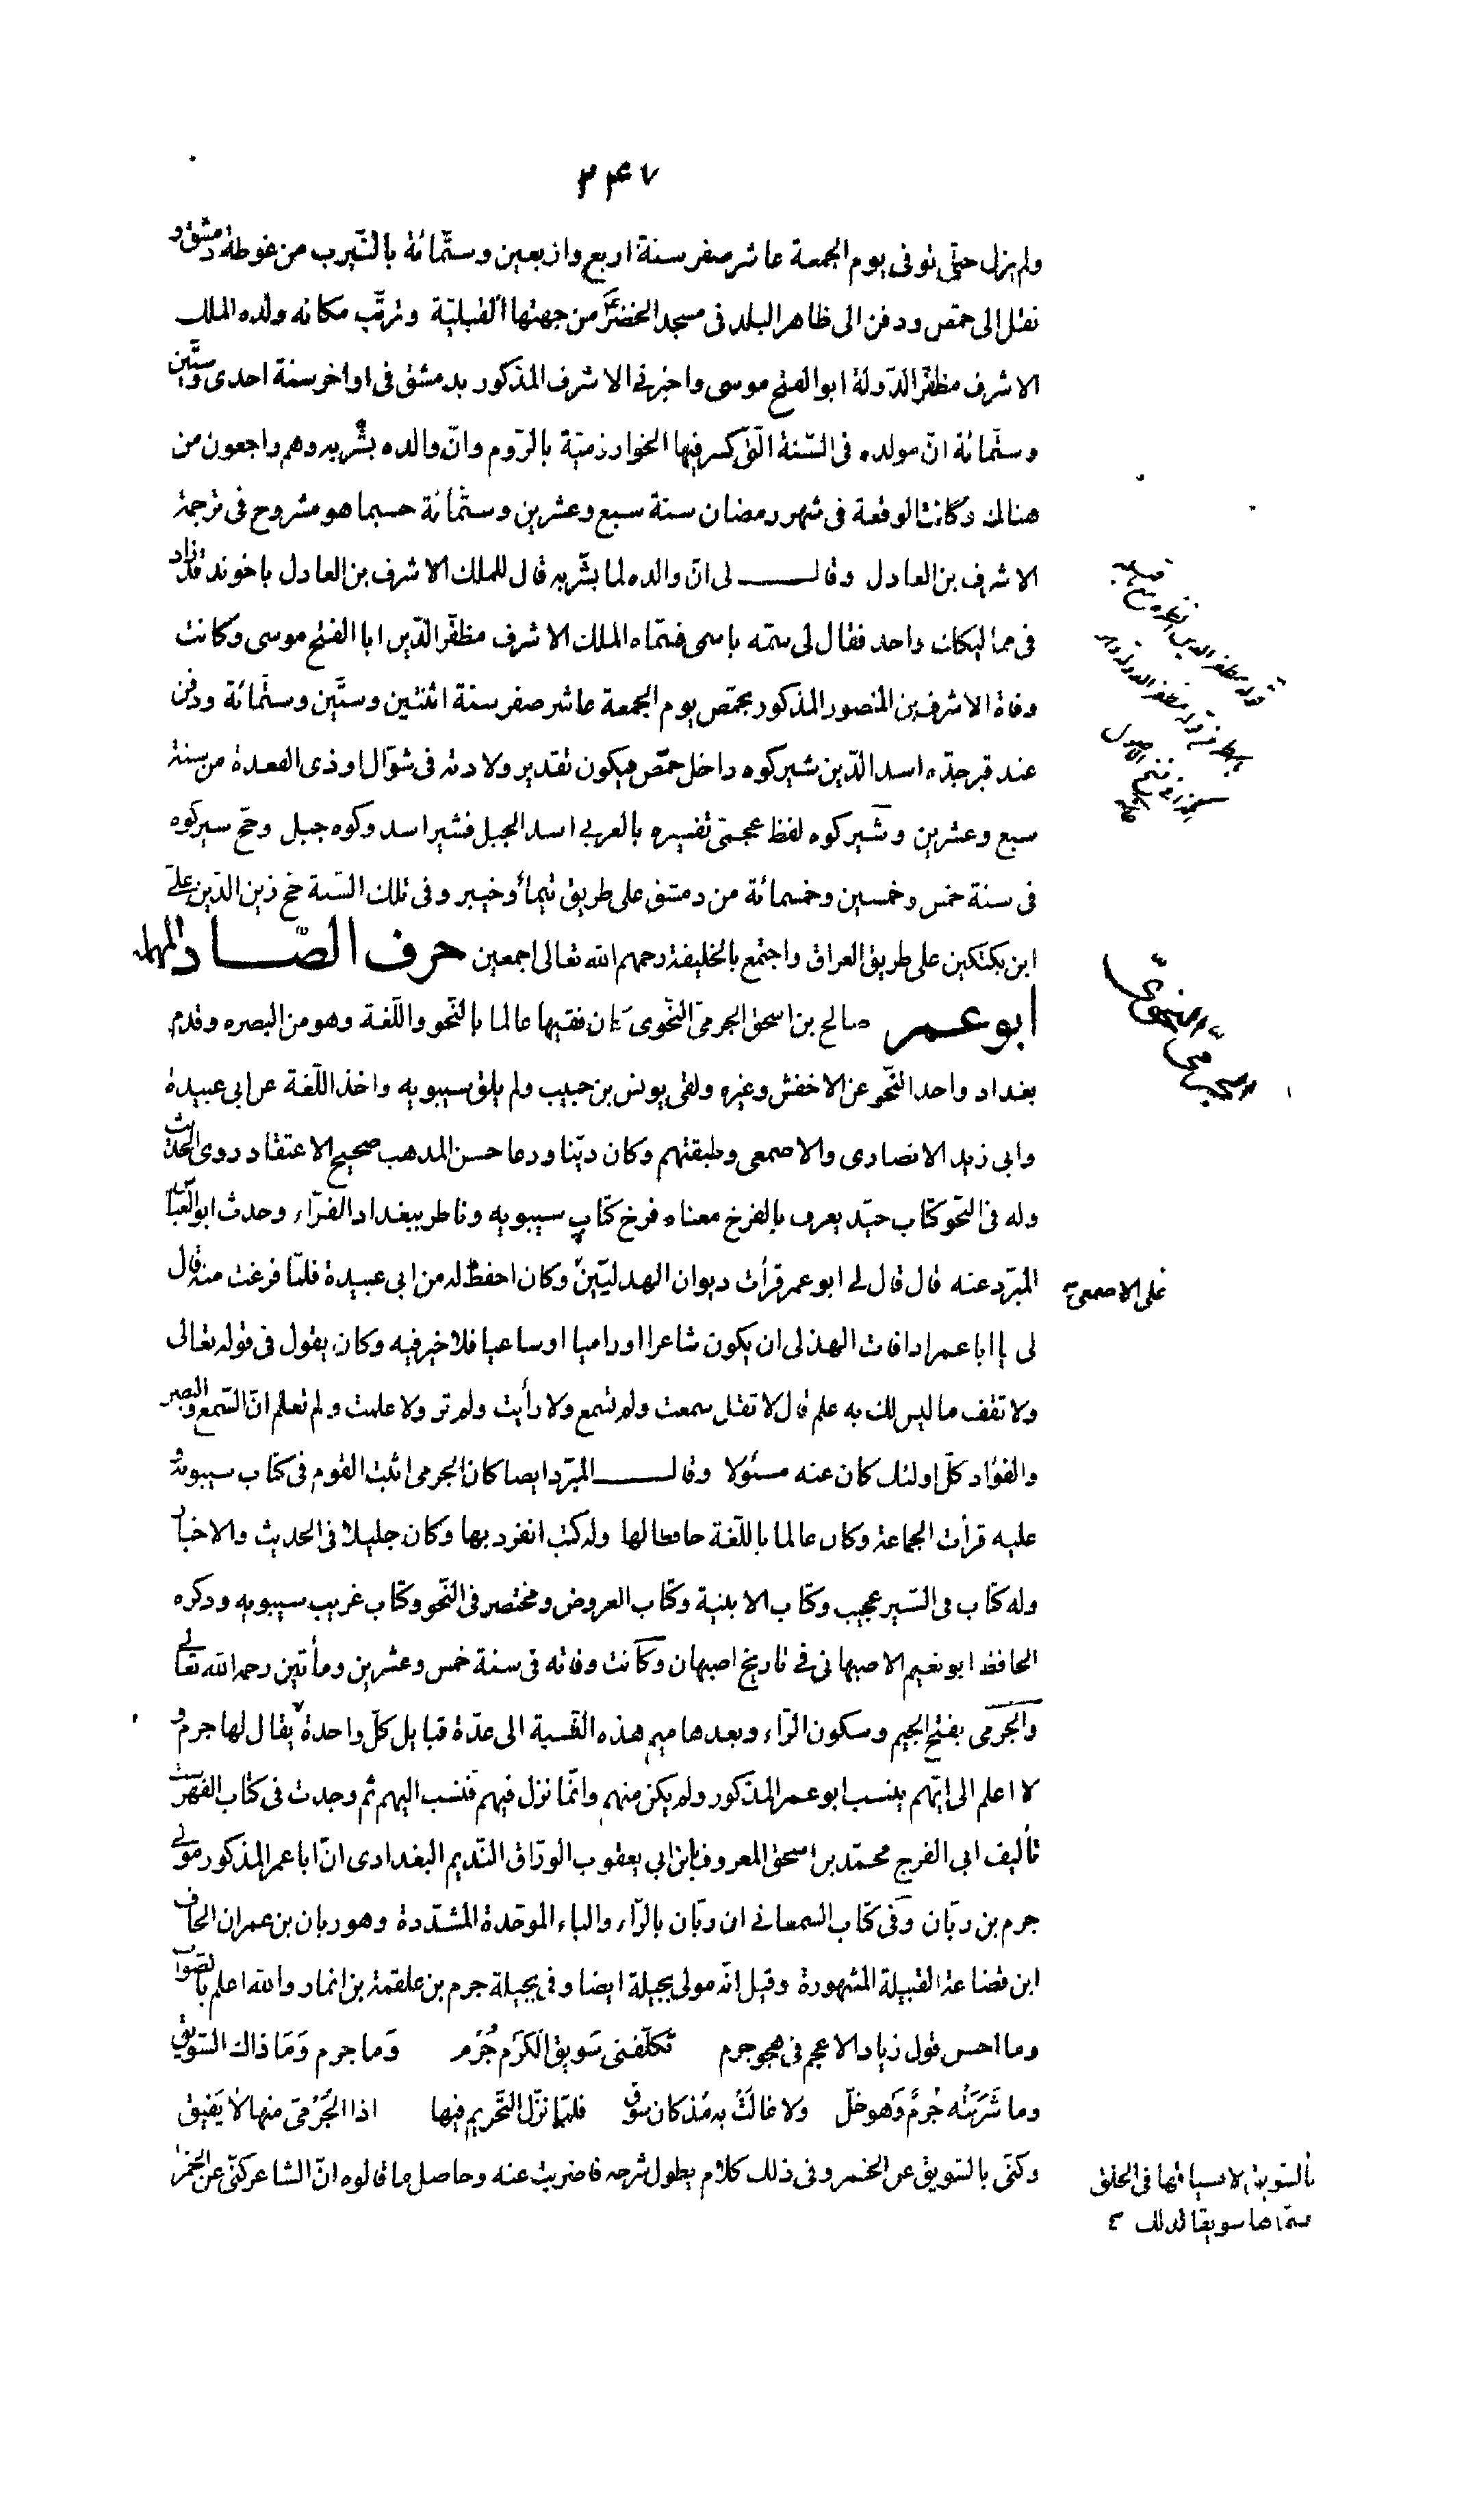 ٢٤٧
ولم يزل حتى توفى يوم الجمعة عاشر صفر سنة اربع واربعين وستّمائة بالنّيرب من غوطة دمشق و
نقل الى حمص ودفن الى ظاهر البلد فى مسجد الخضرؑ من جهتها القبليّة وترتّب مكانه ولده الملك
الاشرف مظفّر الدّولة ابو الفتح موسى واخبرنى الاشرف المذكور بدمشق فى اواخر سنة احدى وستّين
وستّمائة انّ مولده فى السّنة الّتى كسر فيها الخوارزميّة بالرّوم وانّ والده بشّر به وهم راجعون من
هناك وكانت الوقعة فى شهر رمضان سنة سبع وعشرين وستّمائة حسبما هو مشروح فى ترجمة
الاشرف بن العادل وقال لى انّ والده لما بشّر به قال للملك الاشرف بن العادل ياخوند قد زاد
فى مماليكك واحد فقال لى سمّه باسمى فسمّاه الملك الاشرف مظفّر الدّين ابا الفتح موسى وكانت
وفاة الاشرف بن المنصور المذكور بحمص يوم الجمعة عاشر صفر سنة اثنتين وستّين وستّمائة ودفن
عند قبر جدّه اسد الدّين شيركوه داخل حمص فيكون تقدير ولادته فى شوّال او ذى القعدة من سنة
سبع وعشرين وشيركوه لفظ عجمىّ تفسيره بالعربى اسد الجبل فشير اسد وكوه جبل وحجّ شيركوه
فى سنة خمس وخمسين وخمسمائة من دمشق على طريق تيماء وخيبر وفى تلك السّنة حجّ زين الدّين علىّ
ابن بكتكين على طريق العراق واجتمع بالخليفة رحمهم الله تعالى اجمعين حرف الصّاد المهملة
ابو عمر صالح بن اسحق الجرمىّ النّحوى كان فقيها عالما بالنّحو واللّغة وهو من البصره وقدم
الجرمىّ النحوىّ
بغداد واخذ النّحو عن الاخفش وغيره ولقى يونس بن حبيب ولم يلق سيبويه واخذ اللّغة عن ابى عبيدة
وابى زيد الانصارى والاصمعى وطبقتهم وكان ديّنا ورعا حسن المذهب صحيح الاعتقاد روى الحديث
وله فى النّحو كتاب جيّد يعرف بالفرخ معناه فرخ كتاب سيبويه وناظر ببغداد الفرّاء وحدث ابو العبّاس
المبرّد عنه قال قال لى ابو عمر قرأت ديوان الهذليّين وكان احفظ له من ابى عبيدة فلمّا فرغت منه قال
على الاصمعى
لى يا ابا عمر اذا فات الهذلى ان يكون شاعرا او راميا او ساعيا فلا خير فيه وكان يقول فى قوله تعالى
ولا تقف ما ليس لك به علم قال لا تقل سمعت ولم تسمع ولا رأيت ولم تر ولا علمت ولم تعلم انّ السّمع والبصر
والفؤاد كلّ اولئك كان عنه مسئولا وقال المبرّد ايضا كان الجرمى اثبت القوم فى كتاب سيبويه و
عليه قرأت الجماعة وكان عالما باللّغة حافظا لها وله كتب انفرد بها وكان جليلا فى الحديث والاخبار
وله كتاب فى السّير عجيب وكتاب الابنية وكتاب العروض ومختصر فى النّحو وكتاب غريب سيبويه وذكره
الحافظ ابو نعيم الاصبهانى فى تاريخ اصبهان وكانت وفاته فى سنة خمس وعشرين ومأتين رحمه الله تعالى
والجرمى بفتح الجيم وسكون الرّاء وبعدها ميم هذه النّسبة الى عدّة قبايل كلّ واحدة يقال لها جرم و
لا اعلم الى ايّهم ينسب ابو عمر المذكور ولم يكن منهم وانّما نزل فيهم فنسب اليهم ثم وجدت فى كتاب الفهرست
تأليف ابى الفرج محمّد بن اسحق المعروف بابن ابى يعقوب الورّاق النّديم البغدادى انّ ابا عمر المذكور مولى
جرم بن ربّان وفى كتاب السمعانى ان ربّان بالرّاء والباء الموحّدة المشدّدة وهو ربان بن عمران الحاف
ابن قضاعة القبيلة المشهورة وقيل انّه مولى بجيلة ايضا وفى بجيلة جرم بن علقمة بن انمار والله اعلم بالصّواب
وما احسن قول زياد الاعجم فى هجو جرم تكلّفنى سَويق الكَرْم جَرْم وَما جرم وَمَا ذاك السّويق
وما شَرِبَتْه جَرْمٌ وَهو حلّ ولا غالَتْ به مُذ كان سوق فلمّا نزّل التّحريم فيها اذا الجَرْمىّ منها لا يَفيق
وكنّى بالسّويق عن الخمر وفى ذلك كلام يطول شرحه فاضربت عنه وحاصل ما قالوه انّ الشاعر كنّى عن الخمر
بالسّويق لانسياقها فى الحلق
فسمّاها سويقا لذلك